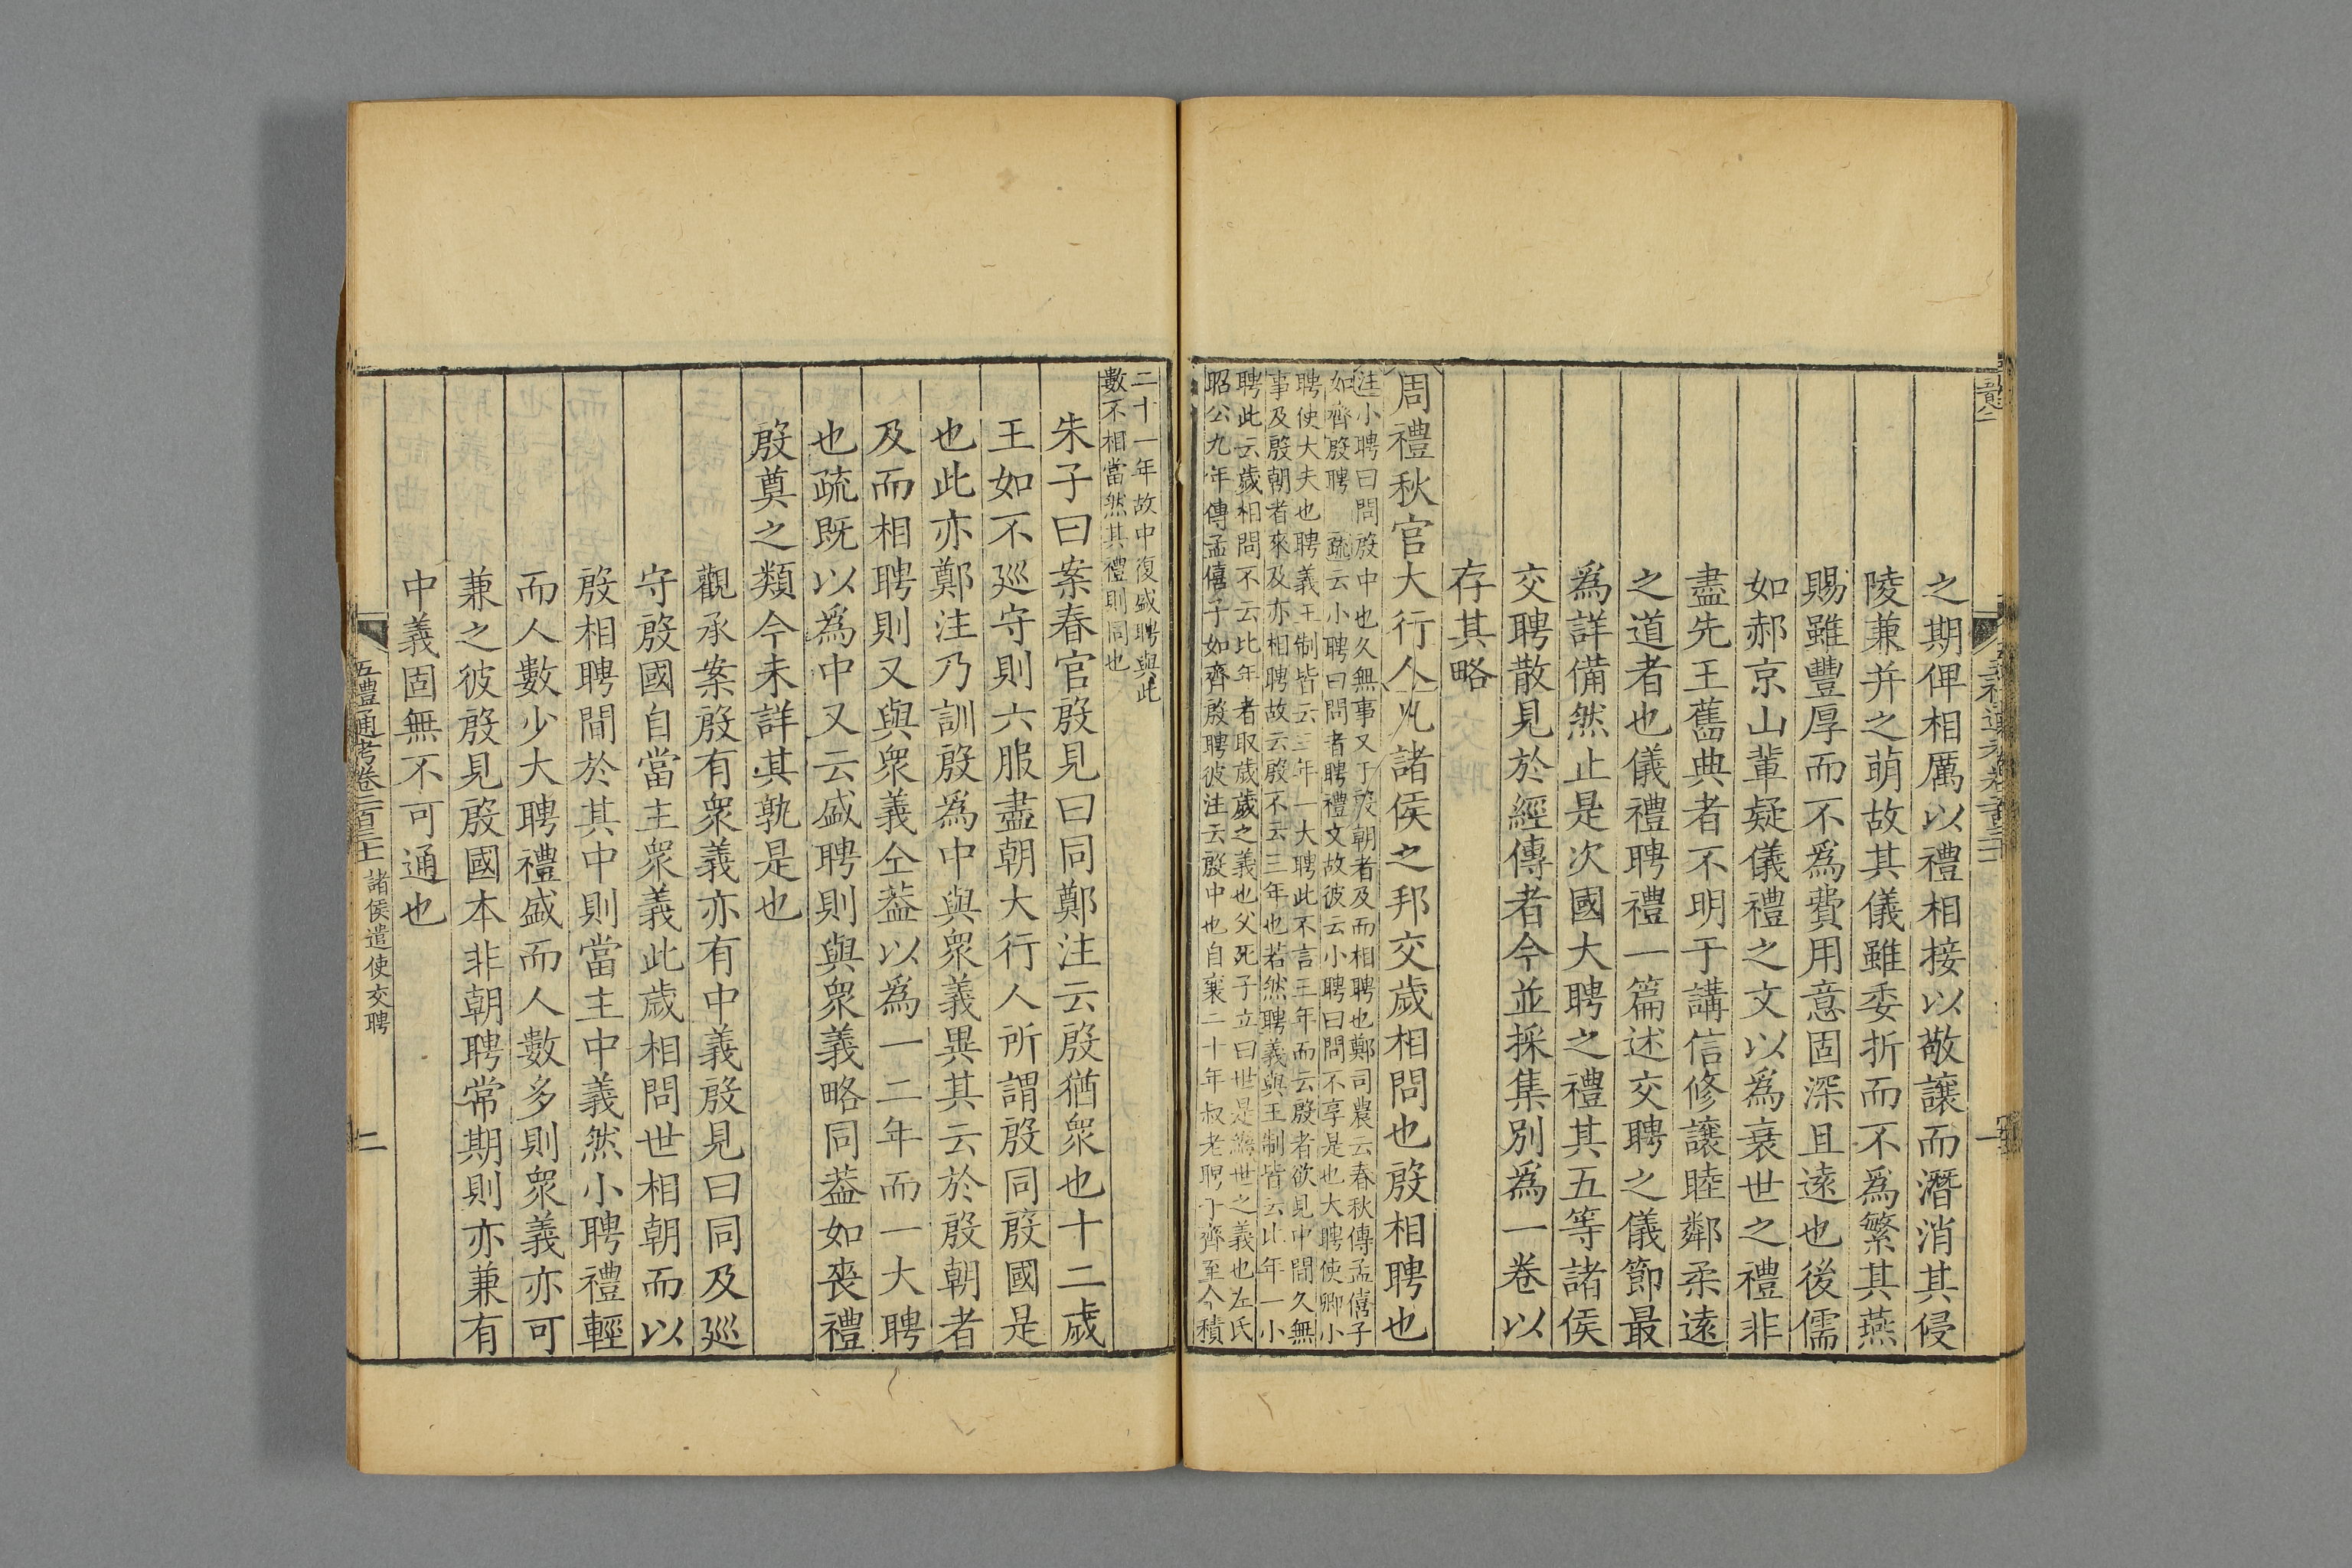 之期俾相厲以禮相接以敬讓而潛消其侵
陵兼并之萌故其儀雖委折而不爲繁其燕
賜雖豐厚而不爲費用意固深且遠也後儒
如郝京山輩疑儀禮之文以爲衰世之禮非
盡先王舊典者不明于講信修讓睦鄰柔遠
之道者也儀禮聘禮一篇述交聘之儀節最
爲詳備然止是次國大聘之禮其五等諸侯
交聘散見於經傳者今並採集別爲一卷以
存其略
周禮秋官大行人凡諸侯之邦交歲相問也殷相聘也
注小聘曰問殷中也久無事又于殷朝者及而相聘也鄭司農云春秋傳孟僖子
如齊殷聘 疏云小聘曰問者聘禮文故彼云小聘曰問不享是也大聘使卿小
聘使大夫也聘義王制皆云三年一大聘此不言三年而云殷者欲見中間久無
事及殷朝者來及亦相聘故云殷不云三年也若然聘義與王制皆云比年一小
聘此云歲相問不云比年者取歲歲之義也父死子立曰世是繼世之義也左氏
昭公九年傳孟僖子如齊殷聘彼注云殷中也自襄二十年叔老聘于齊至今積
二十一年故中復盛聘與此
數不相當然其禮則同也
朱子曰案春官殷見曰同鄭注云殷猶衆也十二歲
王如不巡守則六服盡朝大行人所謂殷同殷國是
也此亦鄭注乃訓殷爲中與衆義異其云於殷朝者
及而相聘則又與衆義仝葢以爲一二年而一大聘
也疏既以爲中又云盛聘則與衆義略同葢如喪禮
殷奠之類今未詳其孰是也
觀承案殷有衆義亦有中義殷見曰同及巡
守殷國自當主衆義此歲相問世相朝而以
殷相聘間於其中則當主中義然小聘禮輕
而人數少大聘禮盛而人數多則衆義亦可
兼之彼殷見殷國本非朝聘常期則亦兼有
中義固無不可通也
五禮通考卷二百三十二 諸侯遣使交聘
二